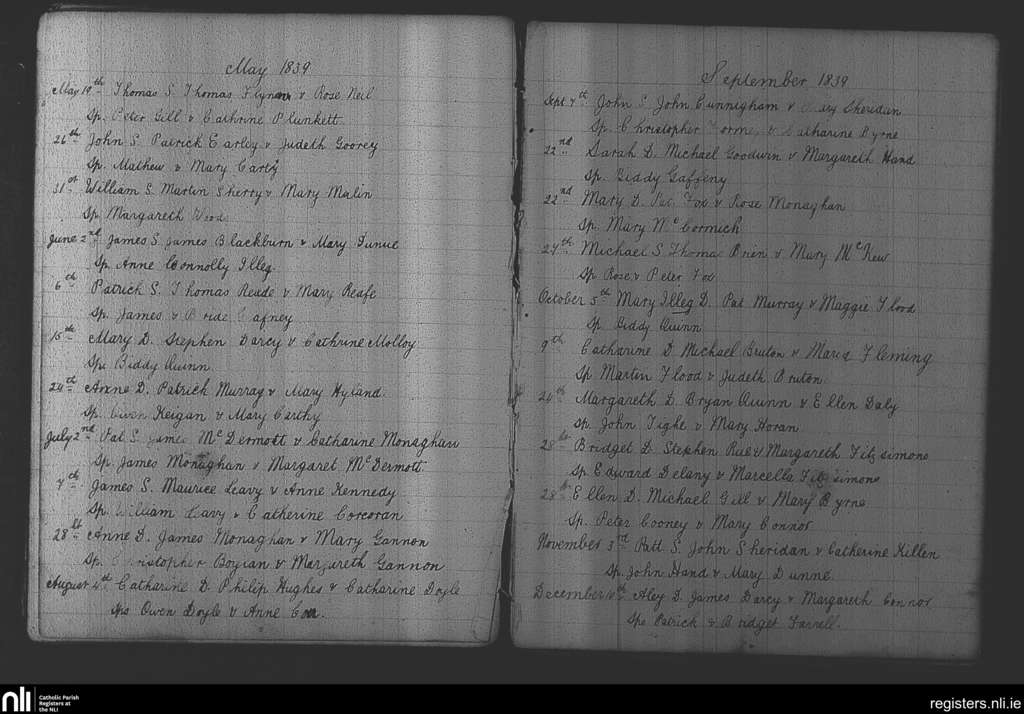 May 1839
May 19th Thomas S. Thomas Flynn & Rose Neil
Sp. Peter Gill & Cathrine Plunkett
26th John S. Patrick Earley & Judeth Goorey
Sp. Mathew & Mary Carty
31st William S. Martin Sherry & Mary Malin
Sp. Margareth Woods
June 2nd James S. James Blackburn & Mary Tunue
Sp. Anne Connolly Illeg.
6th Patrick S. Thomas Reade & Mary Reafe
Sp. James & Bride Gafney
15th Mary D. Stephen Darcy & Cathrine Molloy
Sp. Biddy Quinn
24th Anne D. Patrick Murray & Mary Hyland
Sp. Owen Keigan & Mary Carthy
July 2nd Pat S. James McDermott & Catharine Monaghan
Sp. James Monaghan & Margaret McDermott
7th James S. Maurice Leavy & Anne Kennedy
Sp. William Lavy & Catherine Corcoran
28th Anne D. James Monaghan & Mary Gannon
Sp. Christopher Boylan & Margareth Gannon
August 4th Catharine D. Philip Hughes & Catharine Doyle
Sps Owen Doyle & Anne
September 1839
Sept 7th John S. John Cunnigham & Mary Sheridan
Sp. Christopher & Catharine Byrne
22nd Sarah D. Michael Goodwin & Margareth Hand
Sp. Biddy Gaffeny
22nd Mary D. Pat Fox & Rose Monaghan
Sp. Mary McCormick
27th Michael S. Thomas Brien & Mary McKew
Sp Rose & Peter Fox
October 5th Mary Illeg D. Pat Murray & Maggie Flood
Sp. Biddy Quinn
9th Catharine D. Michael Bruton & Maria Fleming
Sp Martin Flood & Judeth Bruton
24th Margareth D. Bryan Quinn & Ellen Daly
Sp. John Tighe & Mary Horan
28th Bridget D. Stephen Rue & Margareth Fitzsimons
Sp. Edward Delany & Marcella Fitzsimons
28th Ellen D. Michael Gill & Mary Byrne
Sp. Peter Cooney & Mary Connor
November 3rd Patt S. John Sheridan & Catherine Killen
Sp. John Hand & Mary Dunne
December 10th Aley D. James Darcy & Margareth Connor
Sps Patrick & Bridget Farrell.
nli Catholic Parish
Registers at
the NLI
registers.nli.ie